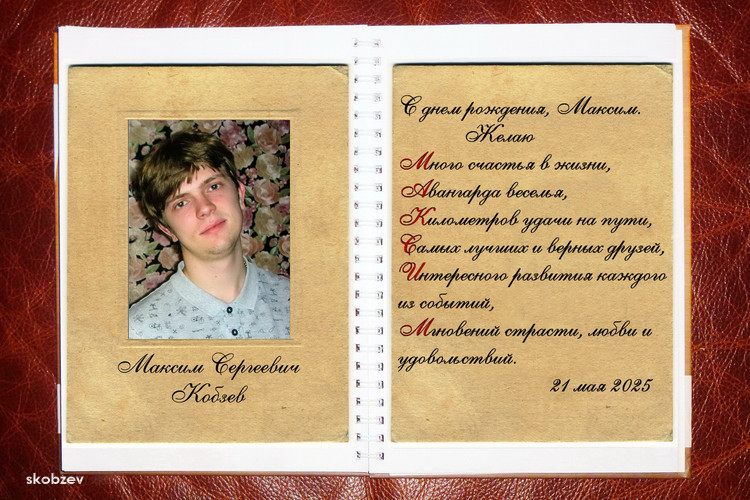 Максим Сергеевич
Кобзев
С днем рождения, Максим.
Желаю
Много счастья в жизни,
Авангарда веселья,
Километров удачи на пути,
Самых лучших и верных друзей,
Интересного развития каждого
из событий,
Мгновений страсти, любви и
удовольствий.
21 мая 2025
skobzev